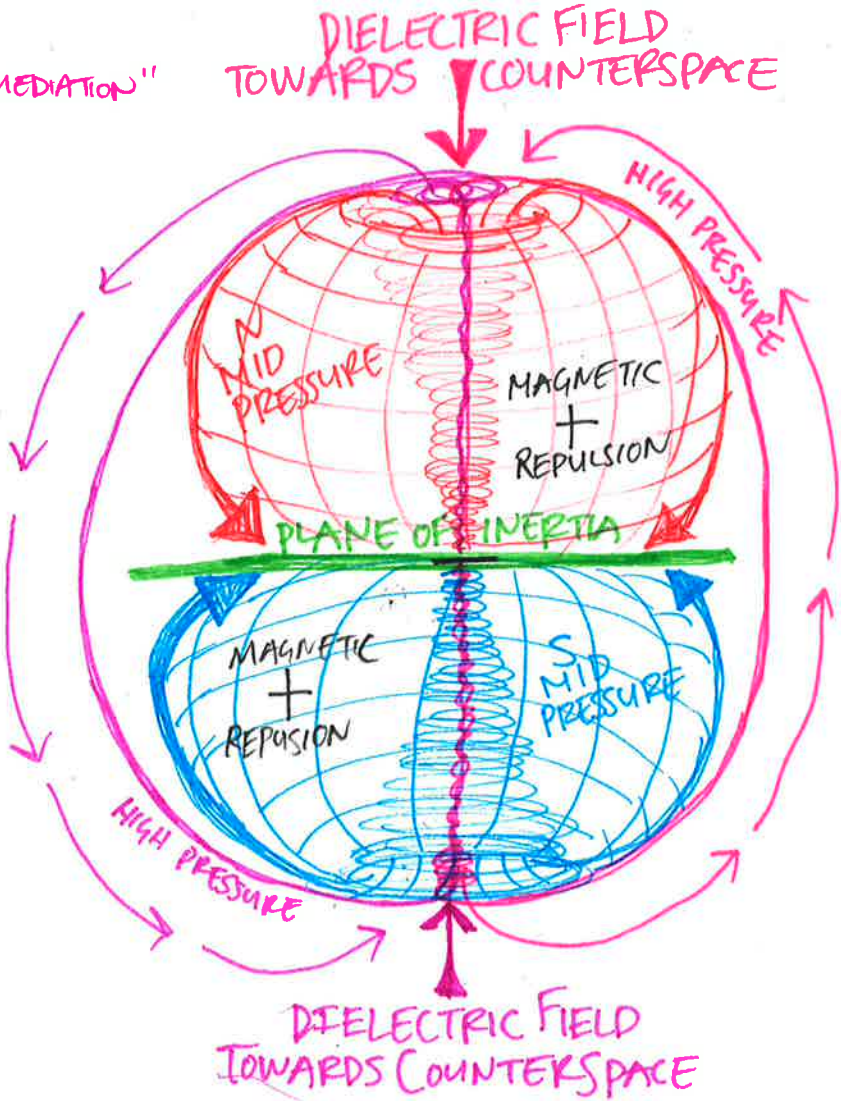 DIELECTRIC FIELD
MEDIATION" TOWARDS COUNTERSPACE
HIGH PRESSURE
N
MID
PRESSURE
MAGNETIC
+
REPULSION
PLANE OF INERTIA
MAGNETIC
+
REPUSION
S
MID
PRESSURE
HIGH PRESSURE
DIELECTRIC FIELD
TOWARDS COUNTERSPACE